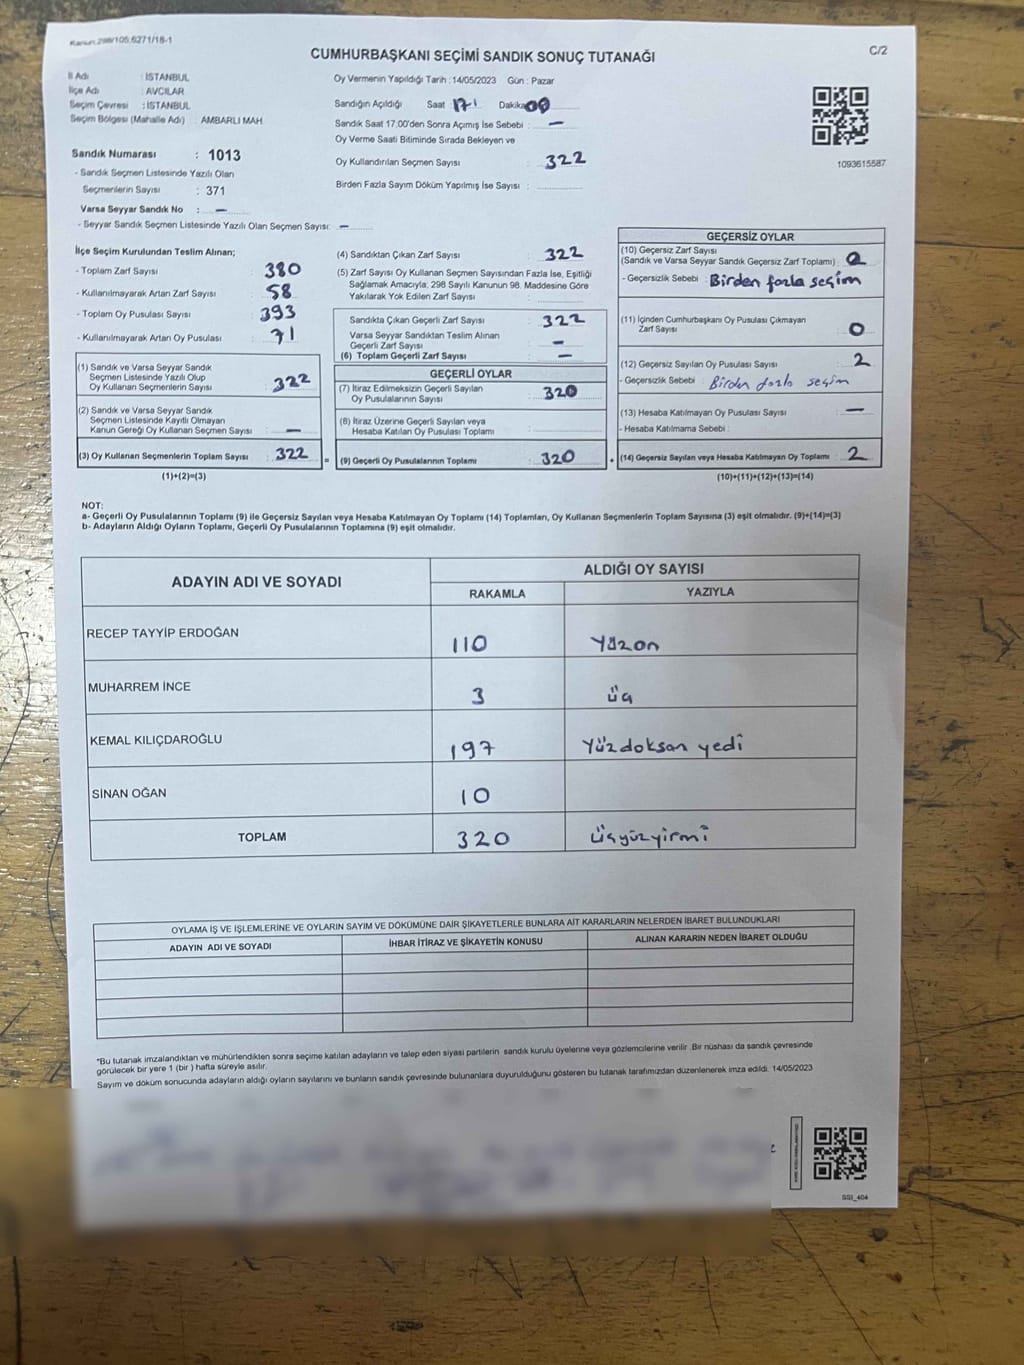 Kanun:298/105,6271/18-1
C/2
CUMHURBAŞKANI SEÇİMİ SANDIK SONUÇ TUTANAĞI
İl Adı : İSTANBUL
İlçe Adı : AVCILAR
Seçim Çevresi : İSTANBUL
Seçim Bölgesi (Mahalle Adı) : AMBARLI MAH.
Sandık Numarası : 1013
- Sandık Seçmen Listesinde Yazılı Olan
Seçmenlerin Sayısı : 371
Varsa Seyyar Sandık No : –
- Seyyar Sandık Seçmen Listesinde Yazılı Olan Seçmen Sayısı: –
Oy Vermenin Yapıldığı Tarih : 14/05/2023 Gün : Pazar
Sandığın Açıldığı Saat 17 Dakika 00
Sandık Saat 17:00'den Sonra Açımış İse Sebebi : –
Oy Verme Saati Bitiminde Sırada Bekleyen ve
Oy Kullandırılan Seçmen Sayısı : 322
Birden Fazla Sayım Döküm Yapılmış İse Sayısı :
1093615587
İlçe Seçim Kurulundan Teslim Alınan;
- Toplam Zarf Sayısı : 380
- Kullanılmayarak Artan Zarf Sayısı : 58
- Toplam Oy Pusulası Sayısı : 393
- Kullanılmayarak Artan Oy Pusulası : 71
(1) Sandık ve Varsa Seyyar Sandık
Seçmen Listesinde Yazılı Olup
Oy Kullanan Seçmenlerin Sayısı : 322
(2) Sandık ve Varsa Seyyar Sandık
Seçmen Listesinde Kayıtlı Olmayan
Kanun Gereği Oy Kullanan Seçmen Sayısı : –
(3) Oy Kullanan Seçmenlerin Toplam Sayısı : 322
(1)+(2)=(3)
(4) Sandıktan Çıkan Zarf Sayısı : 322
(5) Zarf Sayısı Oy Kullanan Seçmen Sayısından Fazla İse, Eşitliği
Sağlamak Amacıyla, 298 Sayılı Kanunun 98. Maddesine Göre
Yakılarak Yok Edilen Zarf Sayısı :
Sandıkta Çıkan Geçerli Zarf Sayısı : 322
Varsa Seyyar Sandıktan Teslim Alınan
Geçerli Zarf Sayısı : –
(6) Toplam Geçerli Zarf Sayısı : –
GEÇERLİ OYLAR
(7) İtiraz Edilmeksizin Geçerli Sayılan
Oy Pusulalarının Sayısı : 320
(8) İtiraz Üzerine Geçerli Sayılan veya
Hesaba Katılan Oy Pusulası Toplamı :
= (9) Geçerli Oy Pusulalarının Toplamı : 320
GEÇERSİZ OYLAR
(10) Geçersiz Zarf Sayısı
(Sandık ve Varsa Seyyar Sandık Geçersiz Zarf Toplamı) :
- Geçersizlik Sebebi : Birden fazla seçim
(11) İçinden Cumhurbaşkanı Oy Pusulası Çıkmayan
Zarf Sayısı : 0
(12) Geçersiz Sayılan Oy Pusulası Sayısı : 2
- Geçersizlik Sebebi : Birden fazla seçim
(13) Hesaba Katılmayan Oy Pusulası Sayısı : –
- Hesaba Katılmama Sebebi :
+ (14) Geçersiz Sayılan veya Hesaba Katılmayan Oy Toplamı : 2
(10)+(11)+(12)+(13)=(14)
NOT:
a- Geçerli Oy Pusulalarının Toplamı (9) ile Geçersiz Sayılan veya Hesaba Katılmayan Oy Toplamı (14) Toplamları, Oy Kullanan Seçmenlerin Toplam Sayısına (3) eşit olmalıdır. (9)+(14)=(3)
b- Adayların Aldığı Oyların Toplamı, Geçerli Oy Pusulalarının Toplamına (9) eşit olmalıdır.
ADAYIN ADI VE SOYADI
ALDIĞI OY SAYISI
RAKAMLA YAZIYLA
RECEP TAYYİP ERDOĞAN 110 Yüzon
MUHARREM İNCE 3 üç
KEMAL KILIÇDAROĞLU 197 Yüzdoksan yedi
SİNAN OĞAN 10
TOPLAM 320 üçyüzyirmi
OYLAMA İŞ VE İŞLEMLERİNE VE OYLARIN SAYIM VE DÖKÜMÜNE DAİR ŞİKAYETLERLE BUNLARA AİT KARARLARIN NELERDEN İBARET BULUNDUKLARI
ADAYIN ADI VE SOYADI İHBAR İTİRAZ VE ŞİKAYETİN KONUSU ALINAN KARARIN NEDEN İBARET OLDUĞU
*Bu tutanak imzalandıktan ve mühürlendikten sonra seçime katılan adayların ve talep eden siyasi partilerin sandık kurulu üyelerine veya gözlemcilerine verilir .Bir nüshası da sandık çevresinde
görülecek bir yere 1 (bir ) hafta süreyle asılır.
Sayım ve döküm sonucunda adayların aldığı oyların sayılarını ve bunların sandık çevresinde bulunanlara duyurulduğunu gösteren bu tutanak tarafımızdan düzenlenerek imza edildi. 14/05/2023
SSI_404